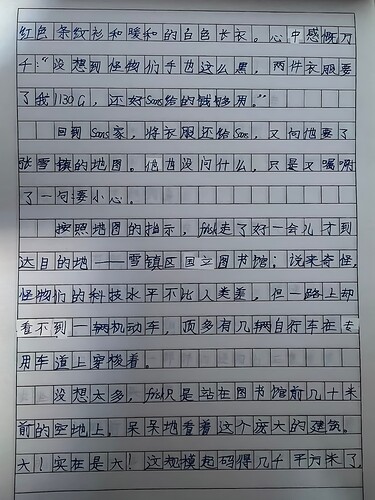 红色条纹衫和暖和的白色长衣。心中感慨万
千："没想到怪物们手也这么黑，两件衣服要
了我1130G，还好Sans给的钱够用。"
回到Sans家，将衣服还给Sans，又向他要了
张雪镇的地图。他也没问什么，只是又嘱咐
了一句要小心。
按照地图的指示，frisk走了好一会儿才到
达目的地——雪镇区国立图书馆；说来奇怪，
怪物们的科技水平不比人类差，但一路上却
看不到一辆机动车，顶多有几辆自行车在专
用车道上穿梭着。
没想太多，frisk只是站在图书馆前几十米
前的空地上。呆呆地看着这个庞大的建筑。
大！实在是大！这规模起码得几千平方米了